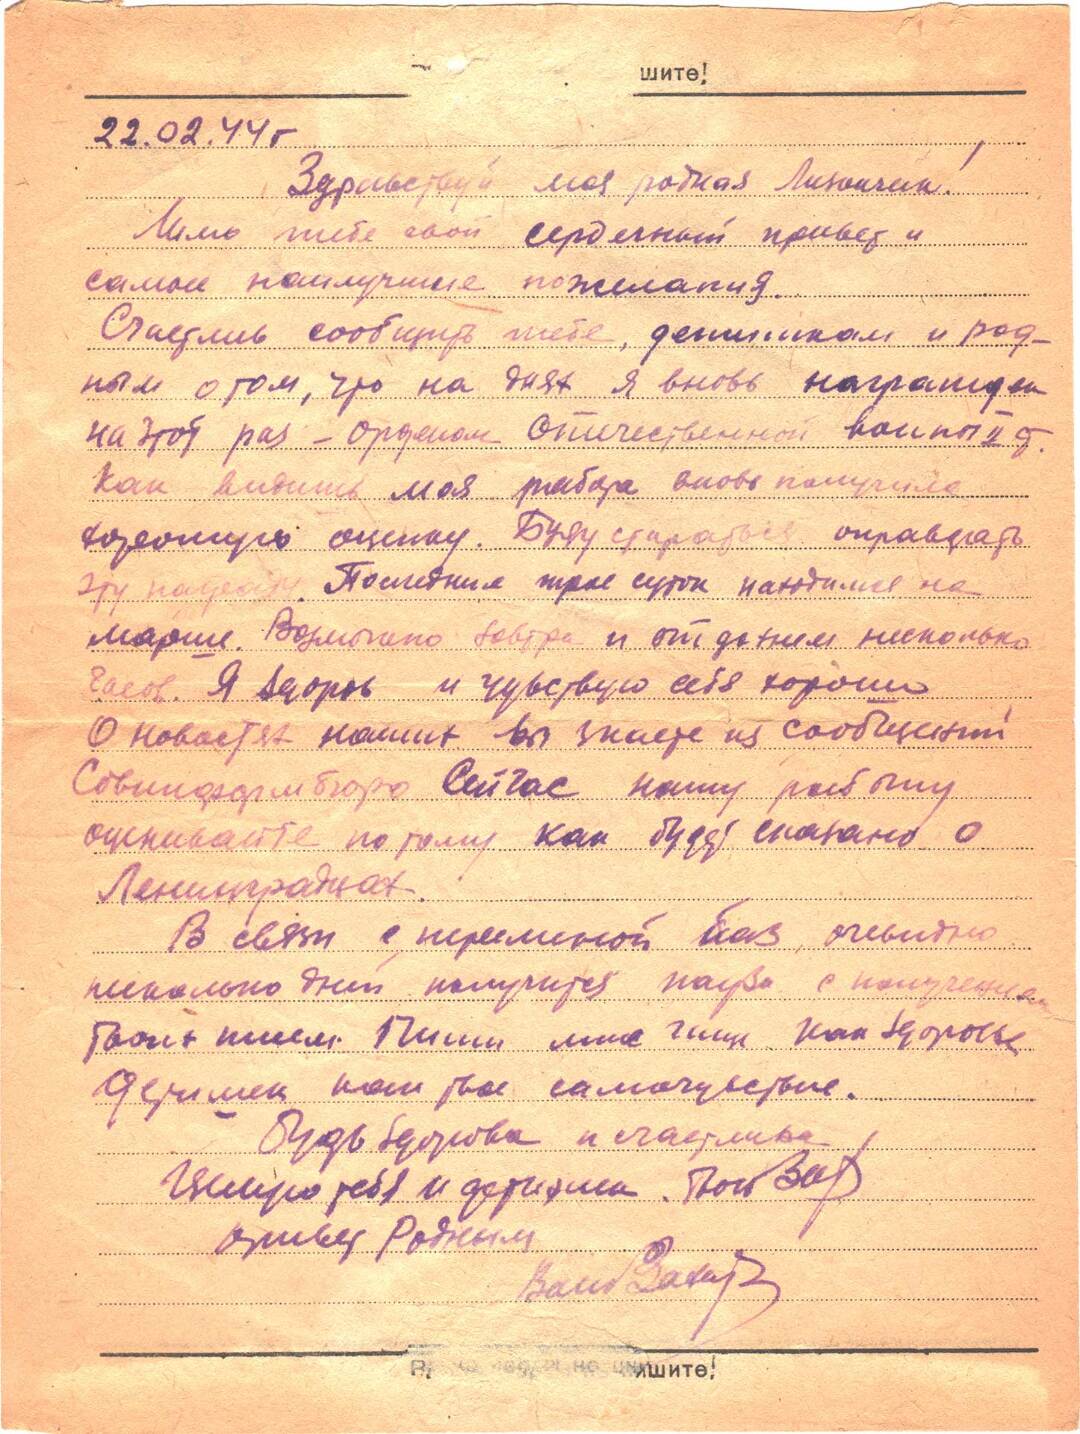 шите!
22.02.44г
Здравствуй моя родная Лизончик!
Шлю тебе свой сердечный привет и
самые наилучшие пожелания.
Счастлив сообщить тебе, детишкам и род-
ным о том, что на днях я вновь награжден
на этот раз – орденом Отечественной войны II ст.
Как видишь моя работа вновь получила
хорошую оценку. Буду стараться оправдать
эту награду. Последние трое суток находимся на
марше. Возможно завтра и отдохнем несколько
часов. Я здоров и чувствую себя хорошо
О новостях наших вы знаете из сообщений
Совинформбюро Сейчас нашу работу
оценивайте потому как будет сказано о
Ленинградцах.
В связи с переменой баз, очевидно
несколько дней получится пауза с получением
твоих писем. Пиши мне чаще как здоровье
детишек как твое самочувствие.
Будь здорова и счастлива!
Целую тебя и детишек. Твой
привет Родным
Ваш
ишите!